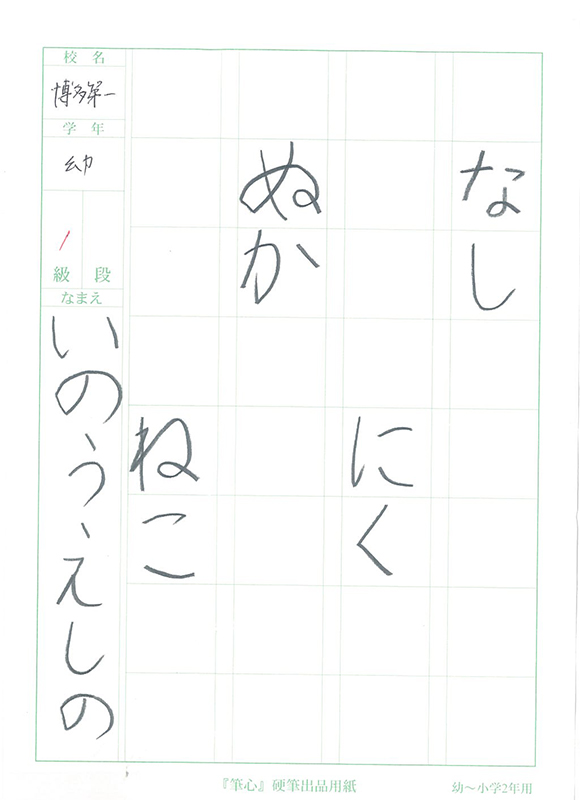 なし
にく
ぬか
ねこ
校名
博多第一
学年
幼
段
級
なまえ
いのうえしの
『筆心』硬筆出品用紙
幼～小学2年用